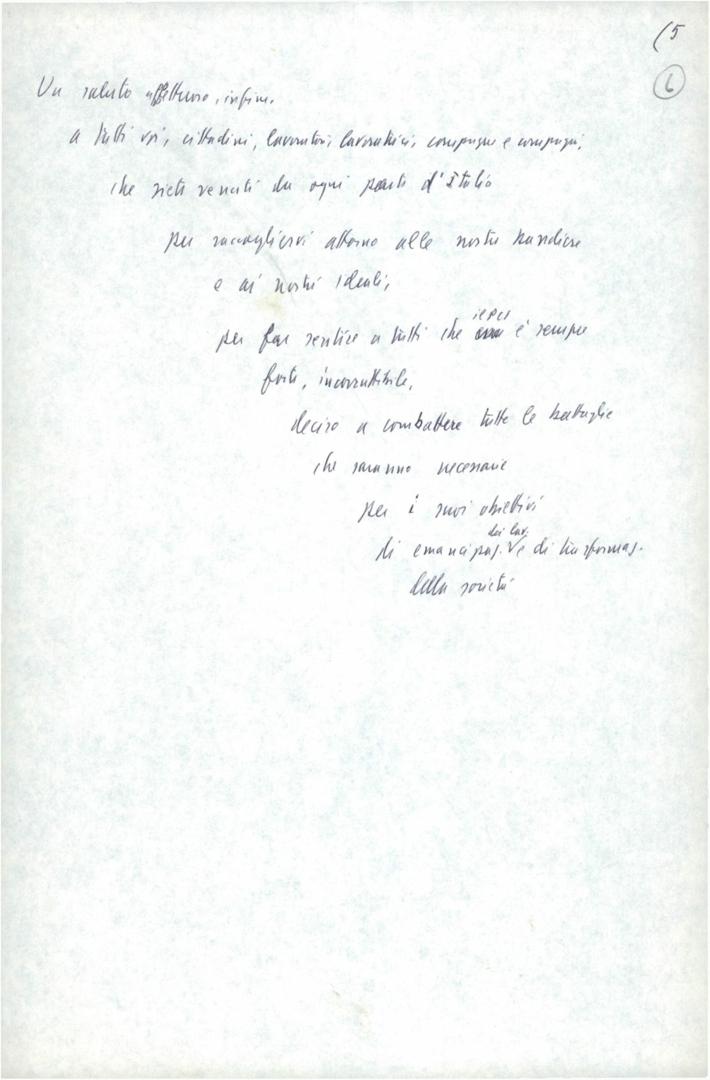 (5
6
Un saluto affettuoso, infine,
a tutti voi, cittadini, lavoratori, lavoratrici, compagne e compagni,
che siete venuti da ogni parte d'Italia
per raccogliervi attorno alle nostre bandiere
e ai nostri ideali,
per far sentire a tutti che il PCI è sempre
forte, incorruttibile,
deciso a combattere tutte le battaglie
che saranno necessarie
per i suoi obiettivi
di emancipaz. dei lav. e di trasformaz.
della società